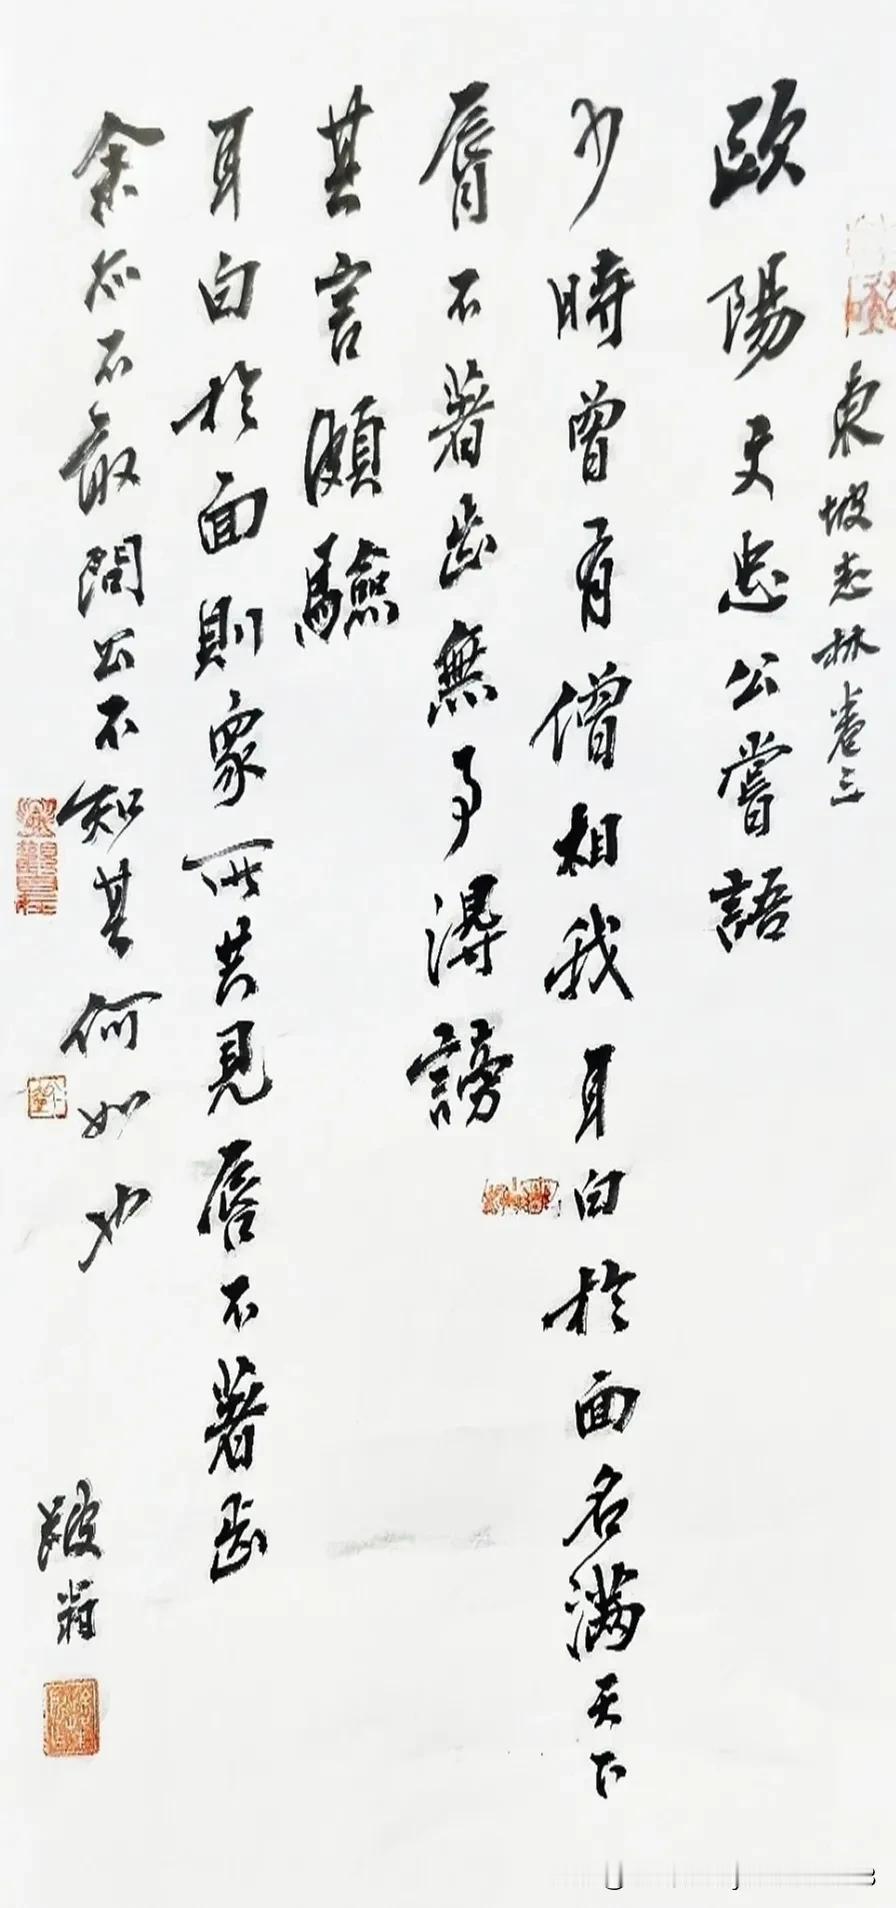 東坡志林卷三
歐陽文忠公嘗語
少時曾有僧相我耳白於面名滿天下
脣不著齒無事得謗
其言頗驗
耳白於面則衆所共見唇不著齒
余亦不敢問公不知其何如也